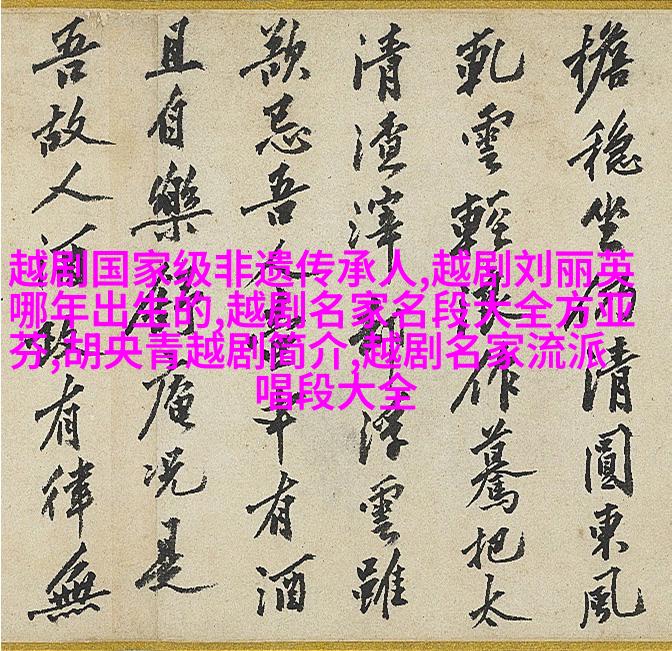 越剧国家级非遗传承人,越剧刘丽英
哪年出生的,越剧名家名段大全方亚
芬,胡央青越剧简介,越剧名家流派
唱段大全
檐穩坐仍清圓東風
軋雲輕浪作驀把太
清渣滓浮雲雖
歆忌吾有酒
且自樂庵况是
吾故人酒政有律無